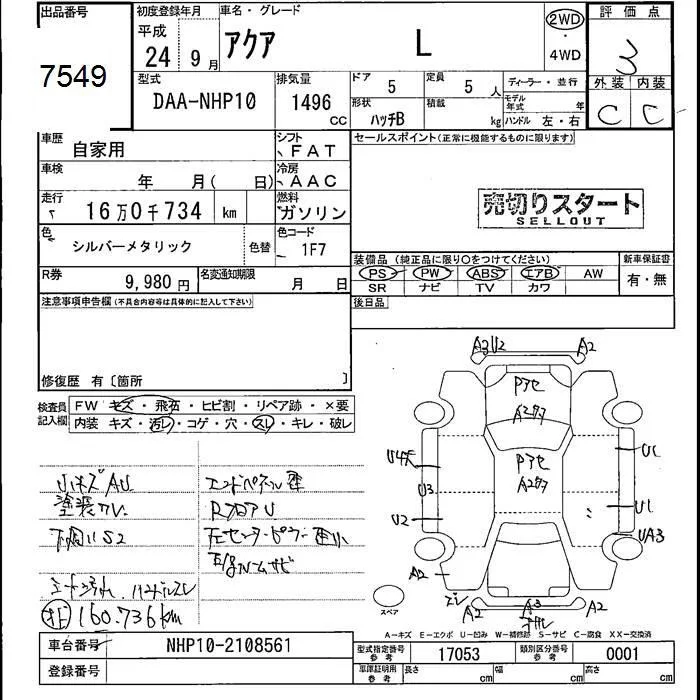 出品番号
7549
初度登録年月
平成
24 9月
車名・グレード
アクア L
2WD
・
4WD
評価点
3
外装 内装
C C
型式
DAA-NHP10
排気量
1496
cc
ドア 5
定員 5 人
形状 ハッチB
積載 kg
ディーラー・並行
モデル年式 年
ハンドル 左・右
車歴
自家用
シフト
FAT
車検
年 月( 日)
冷房
AAC
走行
16万0千734 km
燃料
ガソリン
色
シルバーメタリック
色替
色コード
1F7
R券
9,980 円
名変通知期限
月 日
セールスポイント(正常に機能するものに限ります)
売切りスタート
SELLOUT
装備品(純正品に限り○をつけてください)
PS PW ABS エアB AW
SR ナビ TV カワ
新車保証書
有・無
後日品
注意事項申告欄(不具合内容等は具体的に記入して下さい)
修復歴 有〔箇所 〕
検査員記入欄
FW キズ・飛石・ヒビ割・リペア跡・×要
内装 キズ・汚レ・コゲ・穴・スレ・キレ・破レ
UキズAU
下廻りS2
シート汚れ.ハンドルスレ
160.736km
エンドパネル歪
RフロアU
A3 U2 A2
Pアセ
Pアセ
U3
U2
U1
UA3
A2
スレ
A2
A3
A2
スペア
A-キズ E-エクボ U-凹み W-補修跡 S-サビ C-腐食 XX-交換済
車台番号
NHP10-2108561
登録番号
型式指定番号
参考
17053
類別区分番号
参考
0001
車庫証明用
参考
長さ cm
幅 cm
高さ cm